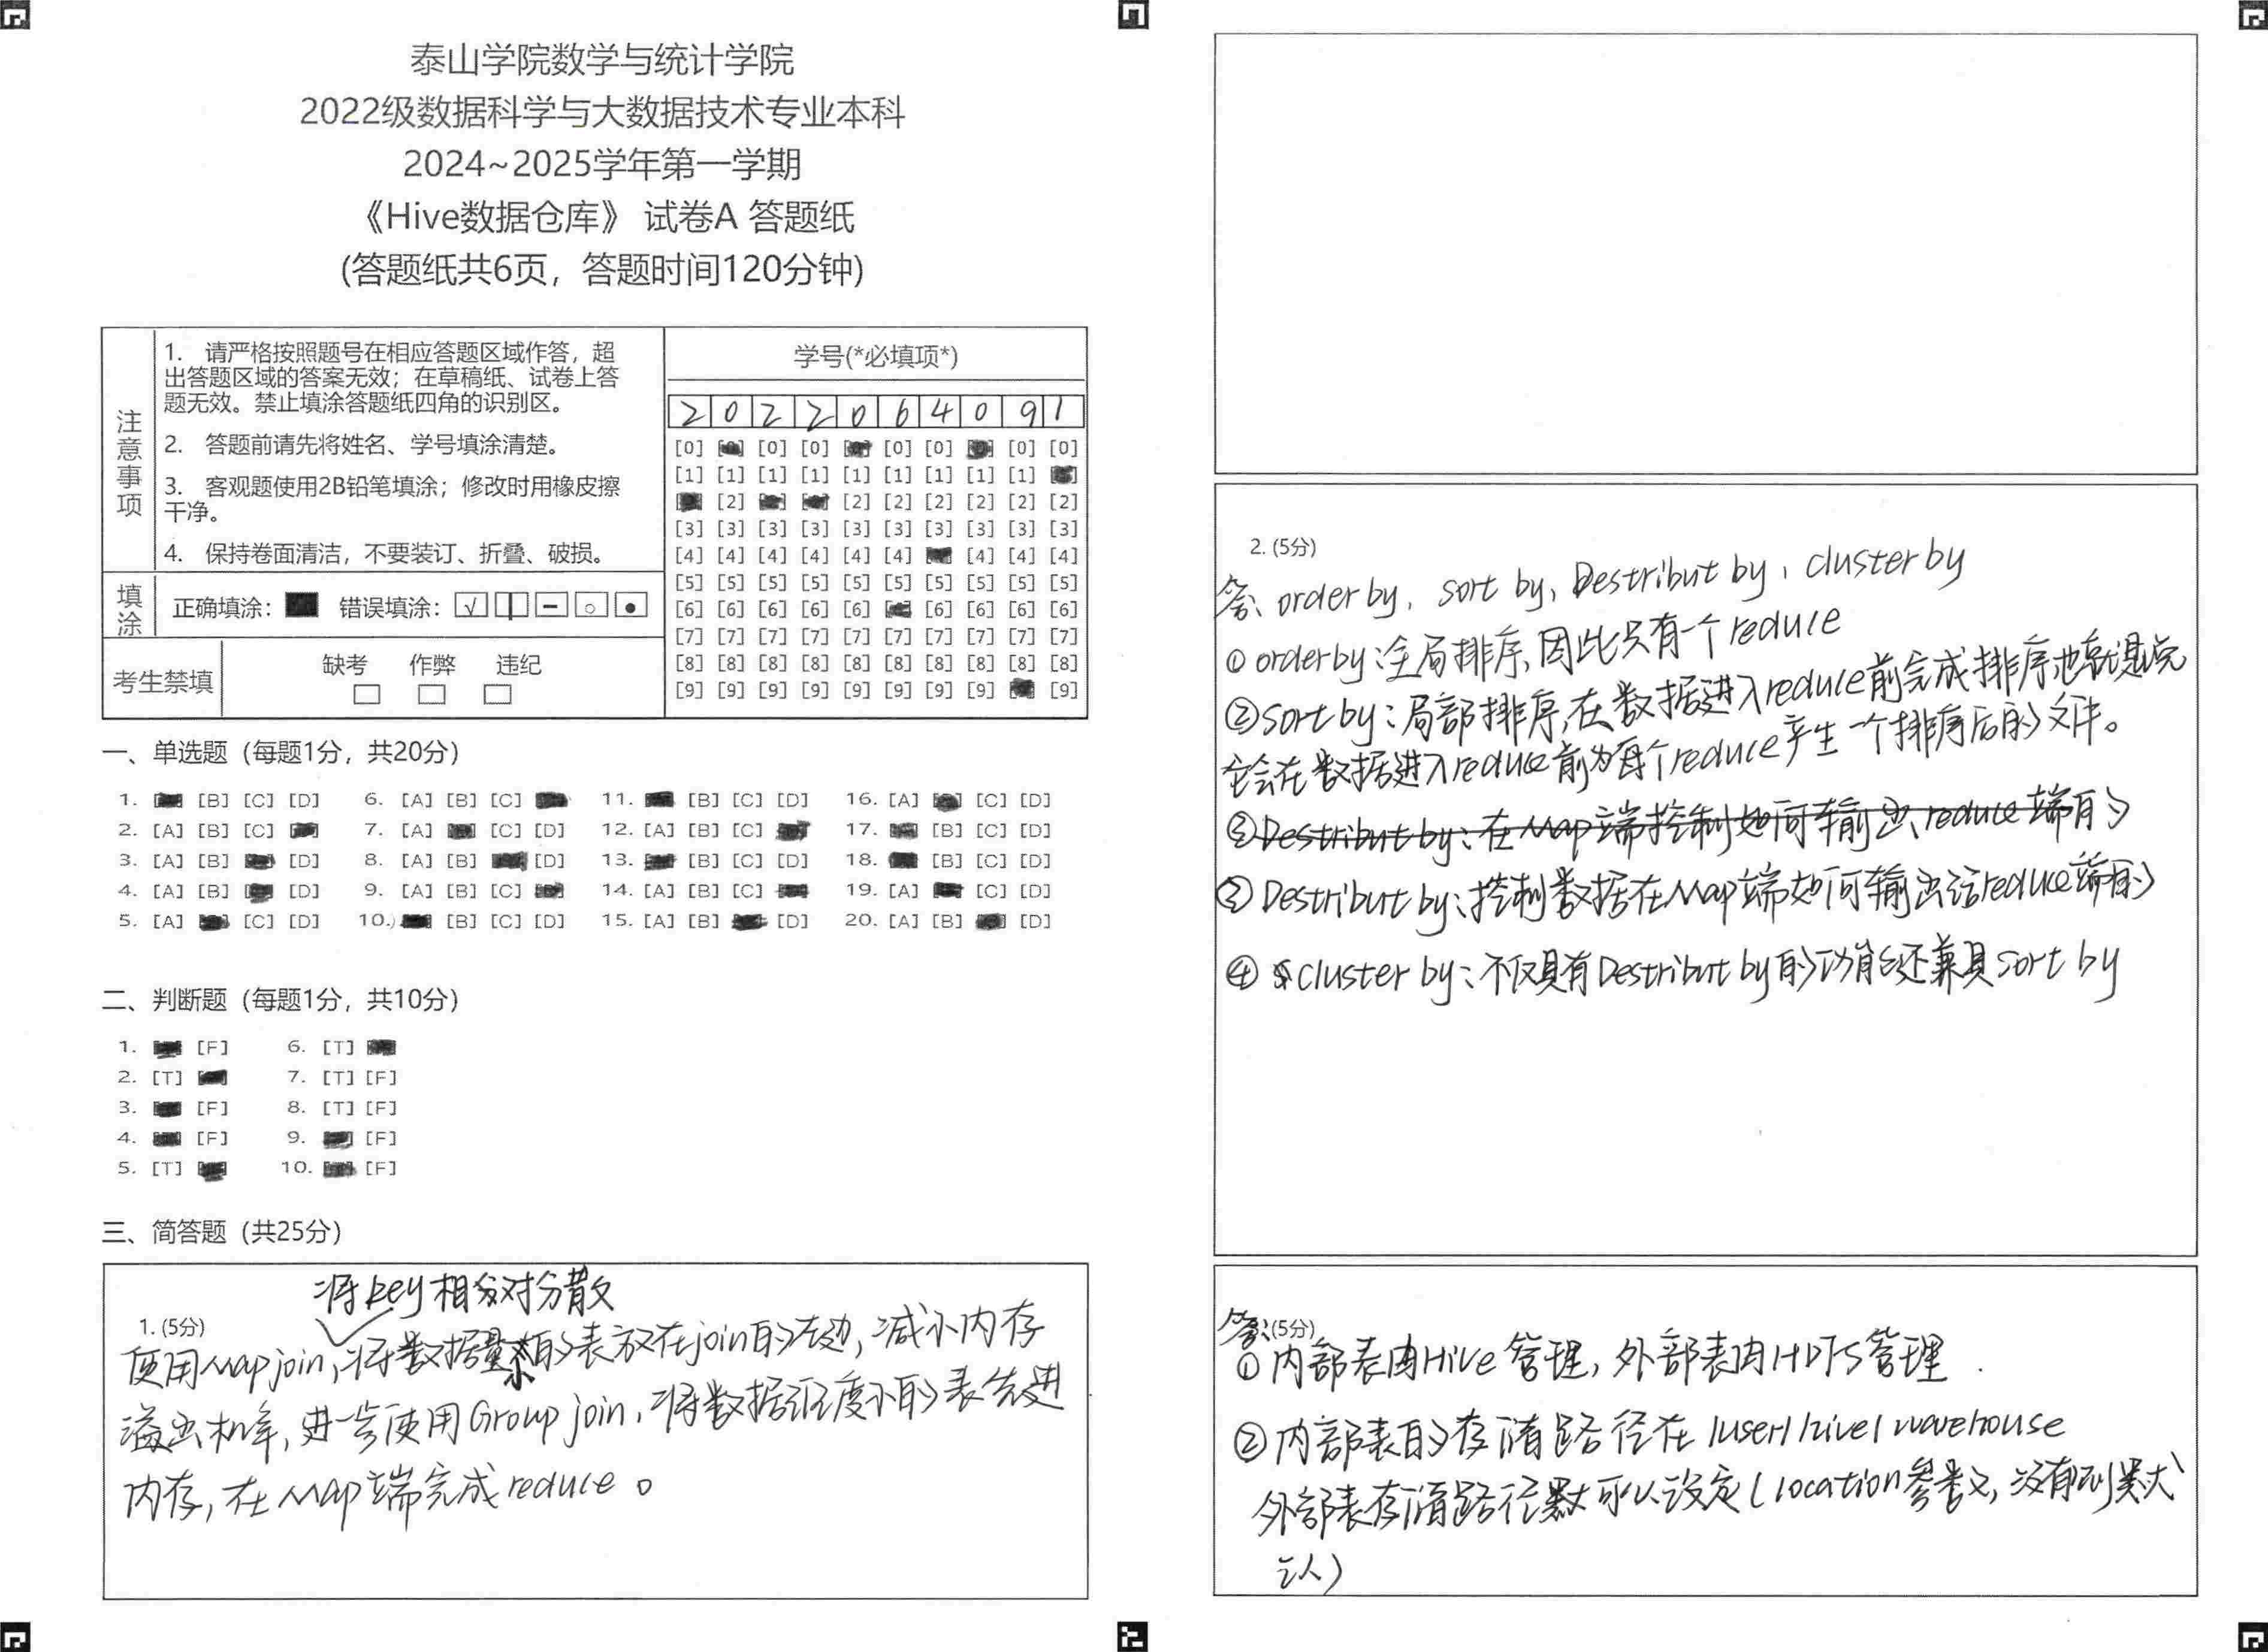 泰山学院数学与统计学院
2022级数据科学与大数据技术专业本科
2024~2025学年第一学期
《Hive数据仓库》 试卷A 答题纸
(答题纸共6页，答题时间120分钟)
注意事项
1. 请严格按照题号在相应答题区域作答，超
出答题区域的答案无效；在草稿纸、试卷上答
题无效。禁止填涂答题纸四角的识别区。
2. 答题前请先将姓名、学号填涂清楚。
3. 客观题使用2B铅笔填涂；修改时用橡皮擦
干净。
4. 保持卷面清洁，不要装订、折叠、破损。
填涂
正确填涂： 错误填涂： √ | − ○ ●
考生禁填
缺考 作弊 违纪
学号(*必填项*)
2 0 2 2 0 6 4 0 9 1
[0] [0] [0] [0] [0] [0] [0]
[1] [1] [1] [1] [1] [1] [1] [1] [1]
[2] [2] [2] [2] [2] [2] [2]
[3] [3] [3] [3] [3] [3] [3] [3] [3] [3]
[4] [4] [4] [4] [4] [4] [4] [4] [4]
[5] [5] [5] [5] [5] [5] [5] [5] [5] [5]
[6] [6] [6] [6] [6] [6] [6] [6] [6]
[7] [7] [7] [7] [7] [7] [7] [7] [7] [7]
[8] [8] [8] [8] [8] [8] [8] [8] [8] [8]
[9] [9] [9] [9] [9] [9] [9] [9] [9]
一、单选题（每题1分，共20分）
1. [B] [C] [D] 6. [A] [B] [C] 11. [B] [C] [D] 16. [A] [C] [D]
2. [A] [B] [C] 7. [A] [C] [D] 12. [A] [B] [C] 17. [B] [C] [D]
3. [A] [B] [D] 8. [A] [B] [D] 13. [B] [C] [D] 18. [B] [C] [D]
4. [A] [B] [D] 9. [A] [B] [C] 14. [A] [B] [C] 19. [A] [C] [D]
5. [A] [C] [D] 10. [B] [C] [D] 15. [A] [B] [D] 20. [A] [B] [D]
二、判断题（每题1分，共10分）
1. [F] 6. [T]
2. [T] 7. [T] [F]
3. [F] 8. [T] [F]
4. [F] 9. [F]
5. [T] 10. [F]
三、简答题（共25分）
将key相对分散
1. (5分)
使用Map join,将数据量小的表放在join的左边,减小内存
溢出机率,进一步使用Group join,将数据浓度小的表先进
内存,在Map端完成reduce。
2. (5分)
答: order by, sort by, Destribut by, cluster by
① order by:全局排序,因此只有一个reduce
② sort by:局部排序,在数据进入reduce前完成排序也就是说
它会在数据进入reduce前为每个reduce产生一个排序后的文件。
③ Destribut by:在Map端控制如何输出、reduce端的
③ Destribut by:控制数据在Map端如何输出给reduce端的
④ cluster by:不仅具有Destribut by的功能还兼具sort by
答: (5分)
① 内部表由Hive管理,外部表由HDFS管理.
② 内部表的存储路径在/user/hive/warehouse
外部表存储路径默可以设定(location参数,没有则默
认)